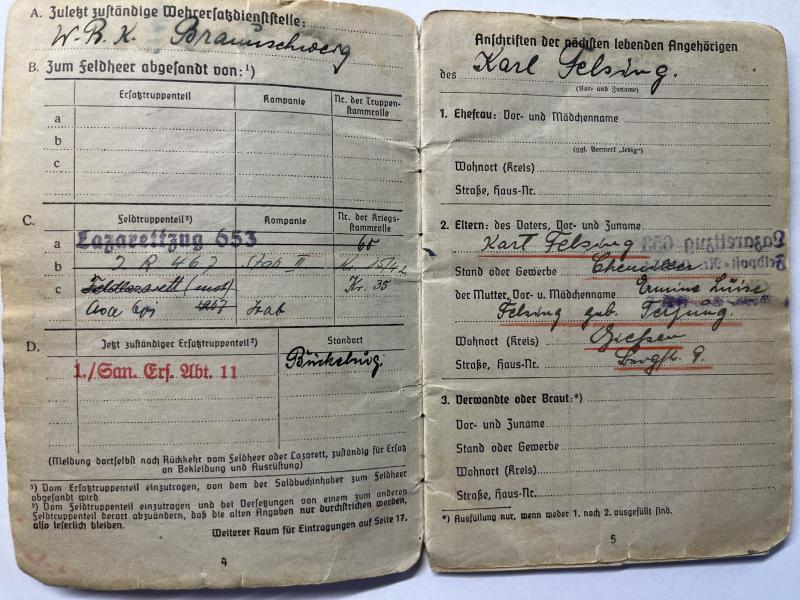 A. Zuletzt zuständige Wehrersatzdienststelle:
W. B. K. Braunschweig
B. Zum Feldheer abgesandt von:¹)
Ersatztruppenteil Kompanie Nr. der Truppen-
stammrolle
a
b
c
C. Feldtruppenteil²) Kompanie Nr. der Kriegs-
stammrolle
a Lazarettzug 653
b J. R. 467 Stab II
c Feldlazarett (mot) Nr. 35
Stab
D. Jetzt zuständiger Ersatztruppenteil²) Standort
1./San. Ers. Abt. 11 Bückeburg.
(Meldung dortselbst nach Rückkehr vom Feldheer oder Lazarett, zuständig für Ersatz
an Bekleidung und Ausrüstung)
¹) Vom Ersatztruppenteil einzutragen, von dem der Soldbuchinhaber zum Feldheer
abgesandt wird.
²) Vom Feldtruppenteil einzutragen und bei Versetzungen von einem zum anderen
Feldtruppenteil derart abzuändern, daß die alten Angaben nur durchstrichen werden,
also leserlich bleiben.
Weiterer Raum für Eintragungen auf Seite 17.
4
Anschriften der nächsten lebenden Angehörigen
des Karl Felsing.
(Vor- und Zuname)
1. Ehefrau: Vor- und Mädchenname
(ggf. Vermerk „ledig")
Wohnort (Kreis)
Straße, Haus-Nr.
2. Eltern: des Vaters, Vor- und Zuname
Karl Felsing
Lazarettzug 653
Stand oder Gewerbe Chemiker
der Mutter, Vor- u. Mädchenname Ermine Luise
Felsing geb.
Wohnort (Kreis) Gießen
Straße, Haus-Nr. Bergstr. 9.
3. Verwandte oder Braut:*)
Vor- und Zuname
Stand oder Gewerbe
Wohnort (Kreis)
Straße, Haus-Nr.
*) Ausfüllung nur, wenn weder 1. noch 2. ausgefüllt sind.
5